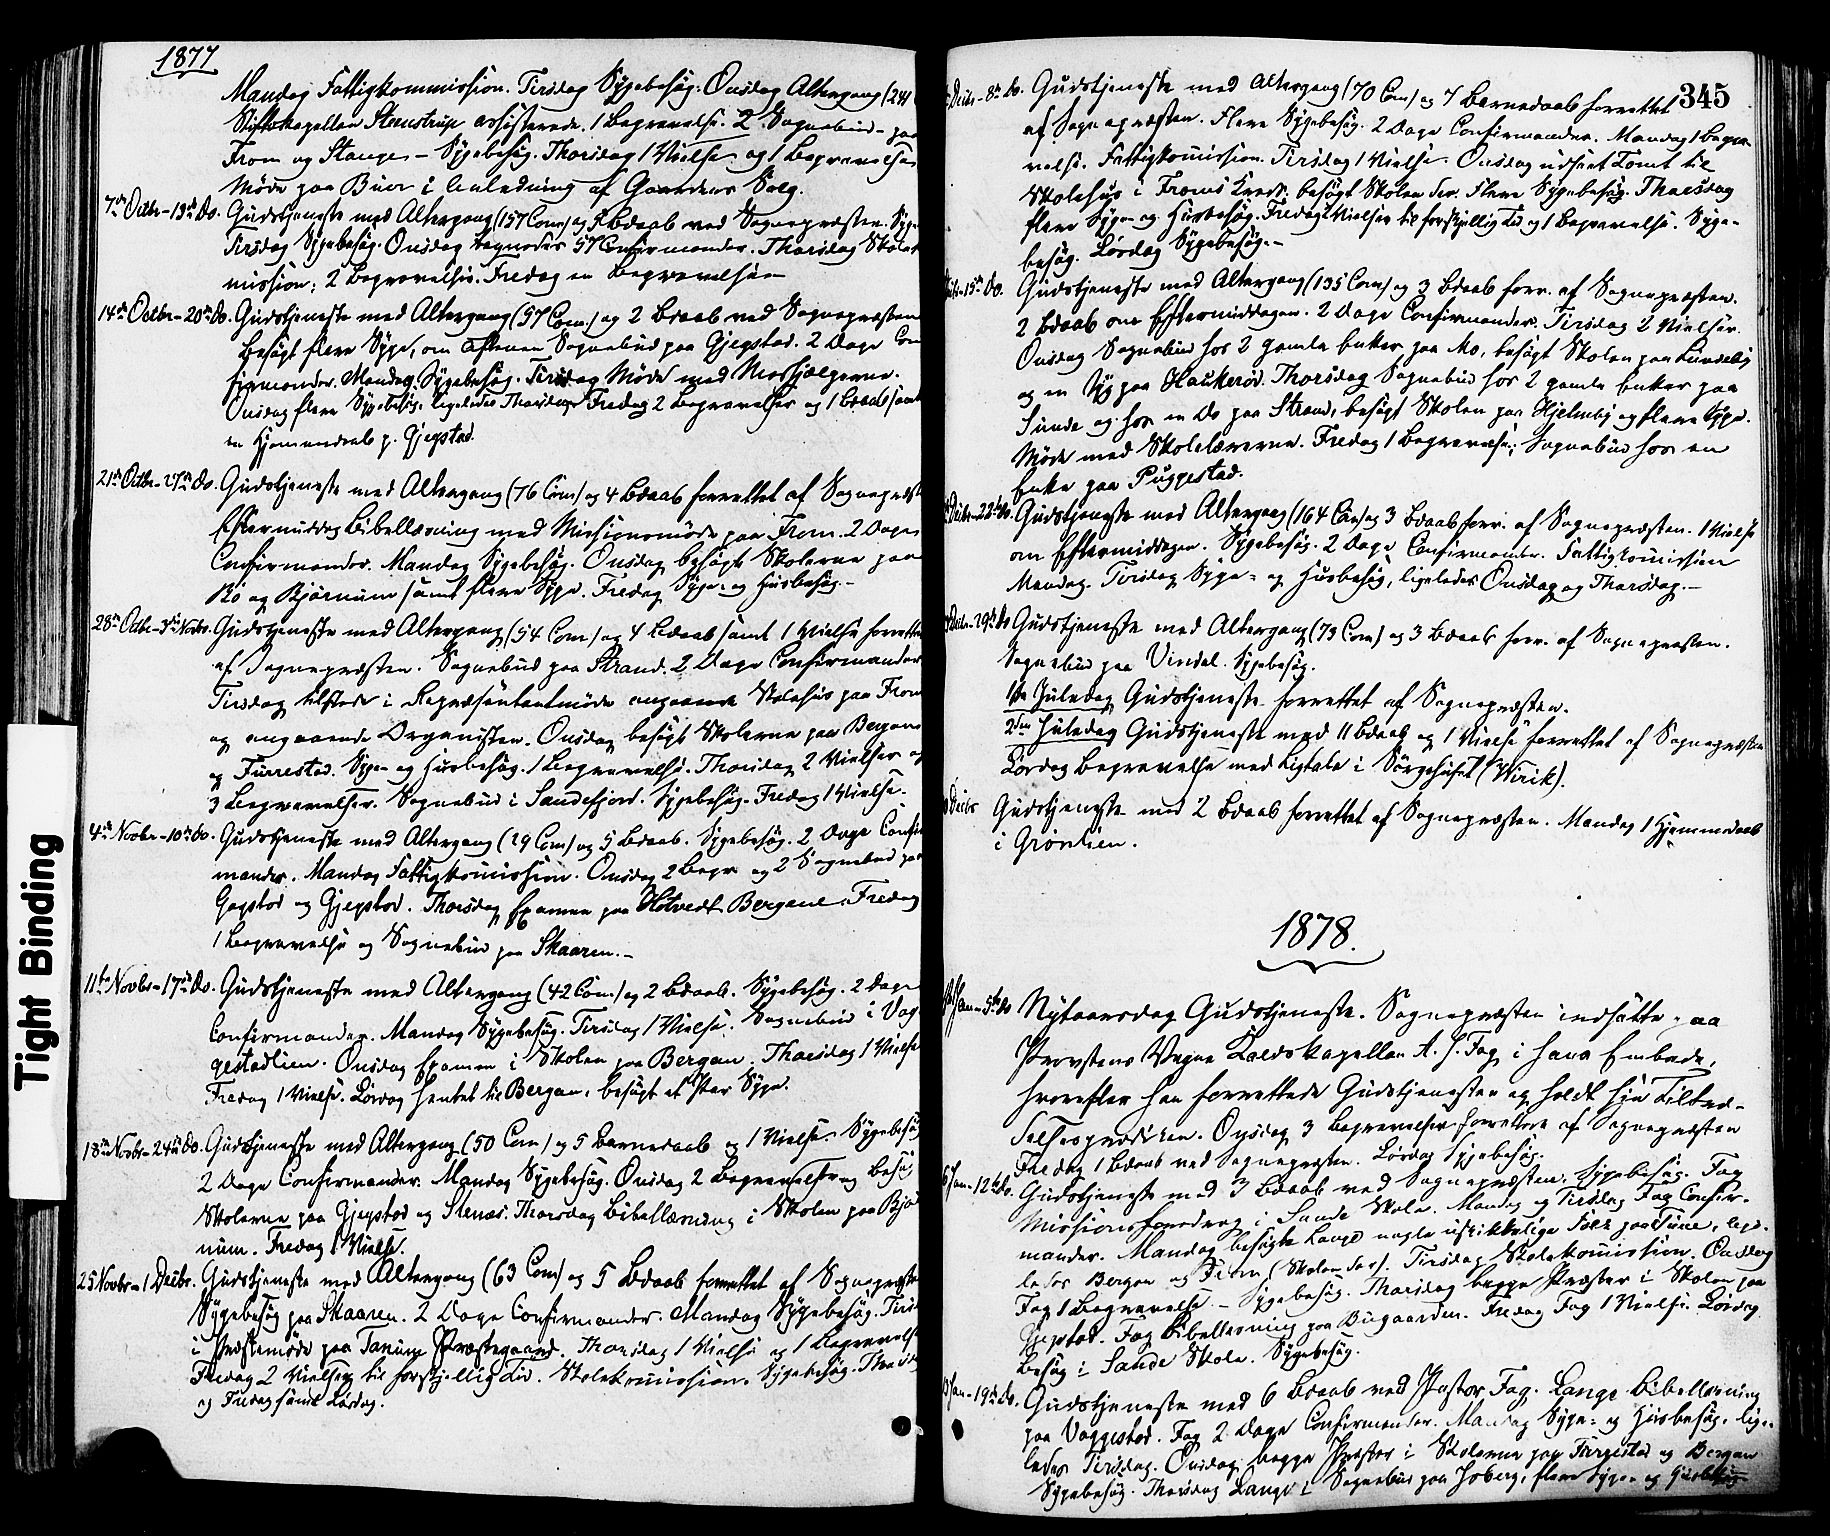 1877
Mandag Fattigkommission. Tirsdag Sygebesøg. Onsdag Altergang (241
Stiftskapellan Steenstrup assisterede. 1 Begravelse. 2 Sognebud paa
From og Stange – Sygebesøg. Thorsdag 1 Vielse og 1 Begravelse
Møde paa Buer i Anledning af Gaardens Salg.
7de Octbr – 13de do. Gudstjeneste med Altergang (157 Com) og 5 Bdaab ved Sognepræsten. Syge
Tirsdag Sygebesøg. Onsdag 57 Confirmander. Thorsdag Skolek
mission; 2 Begravelser. Fredag en Begravelse –
14de Octbr – 20de do. Gudstjeneste med Altergang (57 Com.) og 2 Bdaab ved Sognepræsten
Besøgt flere Syge, om Aftenen Sognebud paa Gjegstad. 2 Dage Con
firmander. Mandag Sygebesøg. Tirsdag Møde med Medhjælperne.
Onsdag flere Sygebesøg, ligeledes Thorsdag. Fredag 2 Begravelser og 1 Bdaab samt
en Hjemmedaab p. Gjegstad.
21de Octbr – 27de do. Gudstjeneste med Altergang (76 Com) og 4 Bdaab forrettet af Sognepræst
Eftermiddag Bibellæsning med Missionsmøde paa From. 2 Dage
Confirmander. Mandag Sygebesøg. Onsdag besøgt Skolerne paa
Bø og Bjørnum samt flere Syge. Fredag Syge- og Husbesøg. –
28de Octbr – 3die Novbr. Gudstjeneste med Altergang (54 Com) og 4 Bdaab samt 1 Vielse forrettet
af Sognepræsten. Sognebud paa Strand. 2 Dage Confirmander
Tirsdag tilstede i Repræsentantmøde angaaende Skolehus paa From
og angaaende Organisten. Onsdag besøgt Skolerne paa Bergan
og Furrestad. Syge- og Husbesøg. 1 Begravelse. Thorsdag 2 Vielser og
3 Begravelser. Sognebud i Sandefjord. Sygebesøg. Fredag 1 Vielse.
4de Novbr – 10de do. Gudstjeneste med Altergang (29 Com) og 5 Bdaab. Sygebesøg. 2 Dage Confir
mander. Mandag Fattigkomission. Onsdag 2 Begr. og 2 Sognebud paa
Gogstad og Gjegstad. Thorsdag Examen paa Hotvedt Bergane. Fredag
1 Begravelse og Sognebud paa Skaaren. –
11te Novbr – 17de do. Gudstjeneste med Altergang (42 Com) og 2 Bdaab. Sygebesøg. 2 Dage
Confirmander. Mandag Sygebesøg. Tirsdag 1 Vielse. Sognebud i Vag
gestadlien. Onsdag Examen i Skolen paa Bergan. Thorsdag 1 Vielse
Fredag 1 Vielse. Lørdag hentet til Bergan, besøgt et Par Syge.
18de Novbr – 24de do. Gudstjeneste med Altergang (50 Com) og 5 Barnedaab og 1 Vielse. Sygebesøg
2 Dage Confirmander. Mandag Sygebesøg. Onsdag 2 Begravelser og besøg
Skolerne paa Gjegstad og Stenæs. Thorsdag Bibellæsning i Skolen paa Bjø
num. Fredag 1 Vielse.
25 Novbr – 1 Decbr. Gudstjeneste med Altergang (63 Com) og 5 Bdaab forrettet af Sognepræste
Sygebesøg paa Skaaren. 2 Dage Confirmander. Mandag Sygebesøg. Tirsd
i Præstemøde paa Tanum Præstegaard. Thorsdag 1 Vielse og 1 Begravelse
Fredag 2 Vielser til forskjellig Tid. Skolekomission. Sygebesøg. Thorsd
og Fredag samt Lørdag.
345
Decbr – 8de do. Gudstjeneste med Altergang (70 Com) og 7 Barnedaab forrettet
af Sognepræsten. Flere Sygebesøg. 2 Dage Confirmander. Mandag 1 Begra
velse. Fattigkomission. Tirsdag 1 Vielse. Onsdag udseet Tomt til
Skolehus i Froms Kreds. besøgt Skolen der. Flere Sygebesøg. Thorsdag
flere Syge- og Husbesøg. Fredag 2 Vielser til forskjellig Tid og 1 Begravelse. Syge-
besøg. Lørdag Sygebesøg. –
15de do. Gudstjeneste med Altergang (135 Com) og 3 Bdaab forr. af Sognepræsten.
2 Bdaab om Eftermiddagen. 2 Dage Confirmander. Tirsdag 2 Vielser.
Onsdag Sognebud hos 2 gamle Enker paa Mo, besøgt Skolen paa Lundeby
og en Syg paa Haukerød. Thorsdag Sognebud hos 2 gamle Enker paa
Sunde og hos en Do paa Strand, besøgt Skolen paa Hjelmby og flere Syge.
Møde med Skolelærerne. Fredag 1 Begravelse; Sognebud hos en
Enke paa Puggestad.
Decbr – 22de do. Gudstjeneste med Altergang (164 Com) og 3 Bdaab forr. af Sognepræsten. 1 Vielse
om Eftermiddagen. Sygebesøg. 2 Dage Confirmander. Fattigkomission
Mandag. Tirsdag Syge- og Husbesøg, ligeledes Onsdag og Thorsdag. –
Decbr – 29de do Gudstjeneste med Altergang (73 Com) og 3 Bdaab forr. af Sognepræsten.
Sognebud paa Vindal. Sygebesøg.
1ste Juledag Gudstjeneste forrettet af Sognepræsten.
2den Juledag Gudstjeneste med 11 Bdaab og 1 Vielse forrettet af Sognepræsten
Lørdag Begravelse med Ligtale i Sørgehuset (Virik).
Decbr Gudstjeneste med 2 Bdaab forrettet af Sognepræsten. Mandag 1 Hjemmedaab
i Grønlien.
1878.
Jan – 5te do Nytaarsdag Gudstjeneste. Sognepræsten indsatte paa
Provstens Vegne Kaldskapellan A. J. Fag i hans Embede,
hvorefter han forrettede Gudstjenesten og holdt sin Tiltræ-
delsespræken. Onsdag 3 Begravelser forrettede af Sognepræsten
Fredag 1 Bdaab ved Sognepræsten. Lørdag Sygebesøg.
6 Jan – 12te do. Gudstjeneste med 3 Bdaab ved Sognepræsten. Sygebesøg. Fag
Missionsforedrag i Sande Skole. Mandag og Tirsdag Fag Confir-
mander. Mandag besøgte Lange nogle uskikkelige Folk paa Sunde, lige-
ledes Bergan og From (Skolen der). Tirsdag Skolekomission. Onsdag
Fag 1 Begravelse – Sygebesøg. Thorsdag begge Præster i Skolen paa
Gjegstad. Fag Bibellæsning paa Bugaarden. Fredag Fag 1 Vielse. Lørdag
Besøg i Sande Skole. Sygebesøg.
Jan – 19de do. Gudstjeneste med 6 Bdaab ved Pastor Fag. Lange Bibellæsning
paa Vaggestad. Fag 2 Dage Confirmander. Mandag Syge- og Husbesøg, lige-
ledes Tirsdag. Onsdag begge Præster i Skolerne paa Furrestad og Bergan
Sygebesøg. Thorsdag Lange i Sognebud paa Joberg, flere Syge- og Husbesøg
Tight Binding